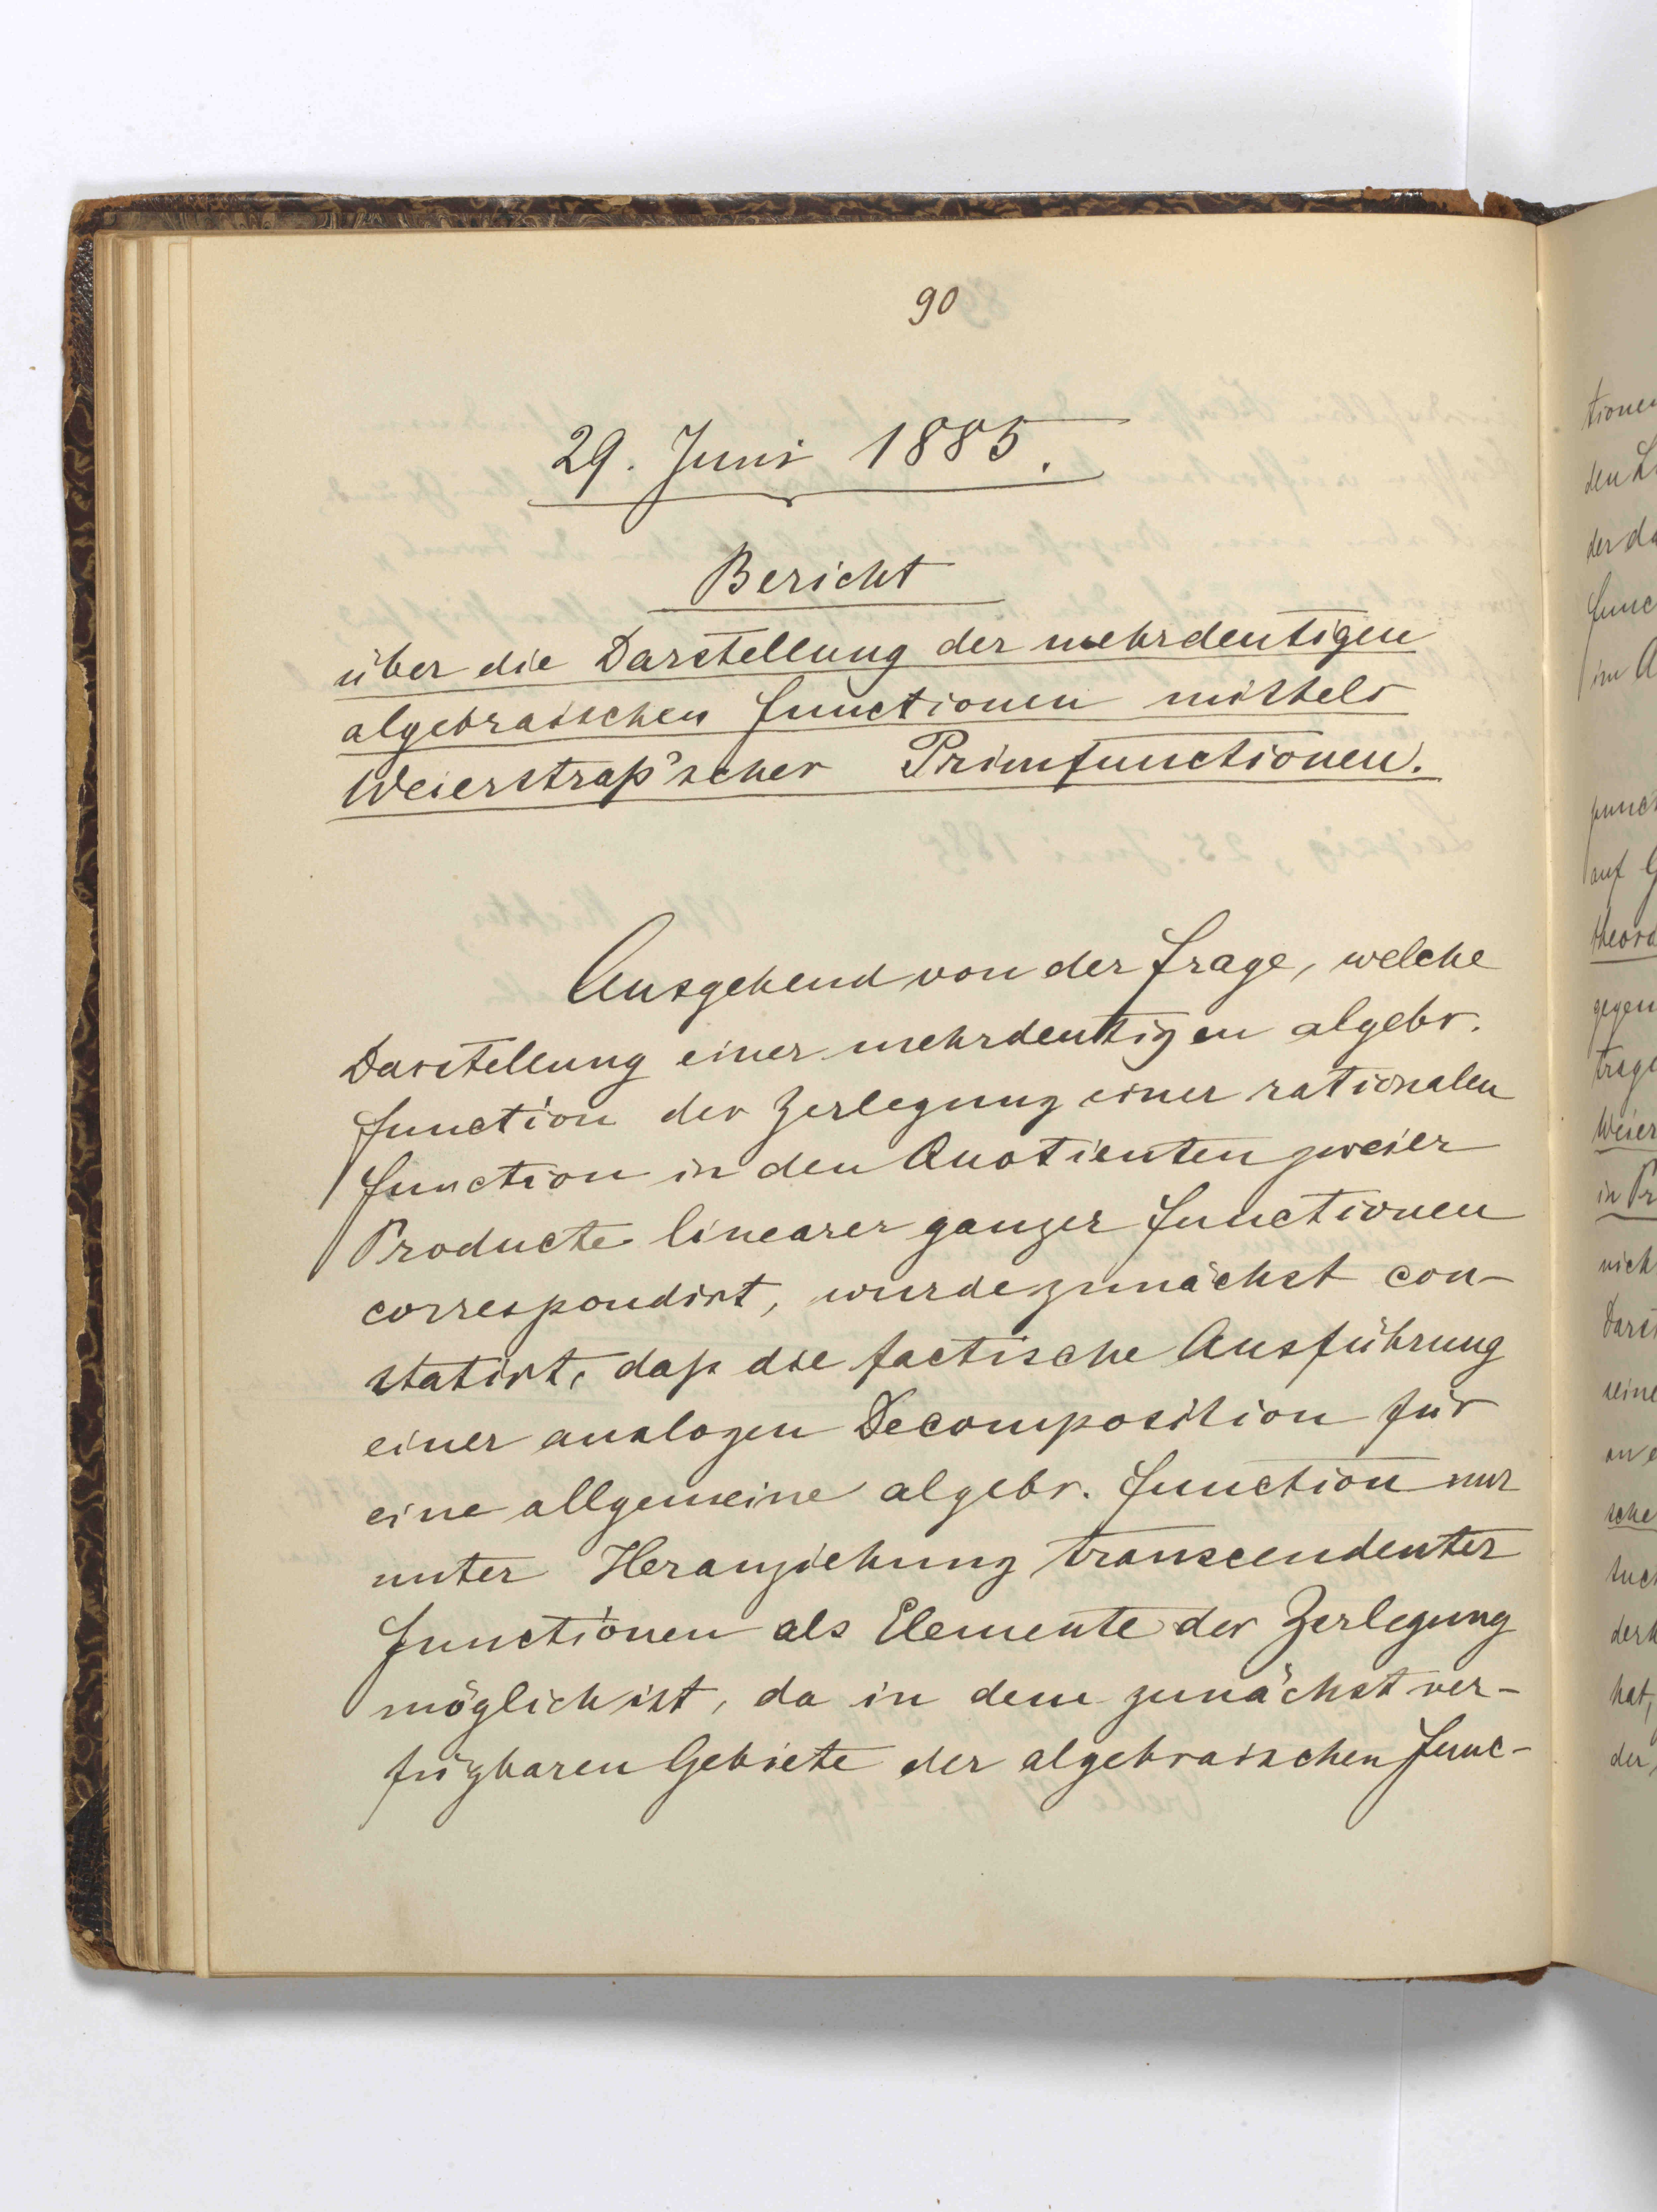 90
29. Juni 1885.
Bericht
über die Darstellung der mehrdeutigen
algebraischen Functionen mittels
Weierstraß'scher Primfunctionen.
Ausgehend von der Frage, welche
Darstellung einer mehrdeutigen algebr.
Function der Zerlegung einer rationalen
Function in den Quotienten zweier
Producte linearer ganzer Functionen
correspondirt, wurde zunächst con-
statirt, daß die factische Ausführung
einer analogen Decomposition für
eine allgemeine algebr. Function nur
unter Heranziehung transcendenter
Functionen als Elemente der Zerlegung
möglich ist, da in dem zunächst ver-
fügbaren Gebiete der algebraischen Func-
tionen
den L
der da
func
im A
punct
auf G
theore
gegen
trage
Weier
in Pr
nich
Darst
seine
an e
sche
suc
der h
hat,
der